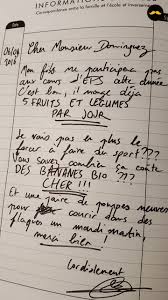 INFORMATIONS
Correspondance entre la famille et l'école et inversement
Date
04/09
2018
Cher Monsieur Dominguez
Mon fils ne participera pas
aux cours d'EPS cette année.
C'est bon, il mange déjà
5 FRUITS ET LÉGUMES
PAR JOUR
Je vais pas en plus le
forcer à faire du sport ???
Vous savez combien ça coûte
des BANANES BIO ???
CHER !!!
Et une paire de pompes neuves
pour courir dans des
flaques un mardi matin,
merci bien !
Cordialement